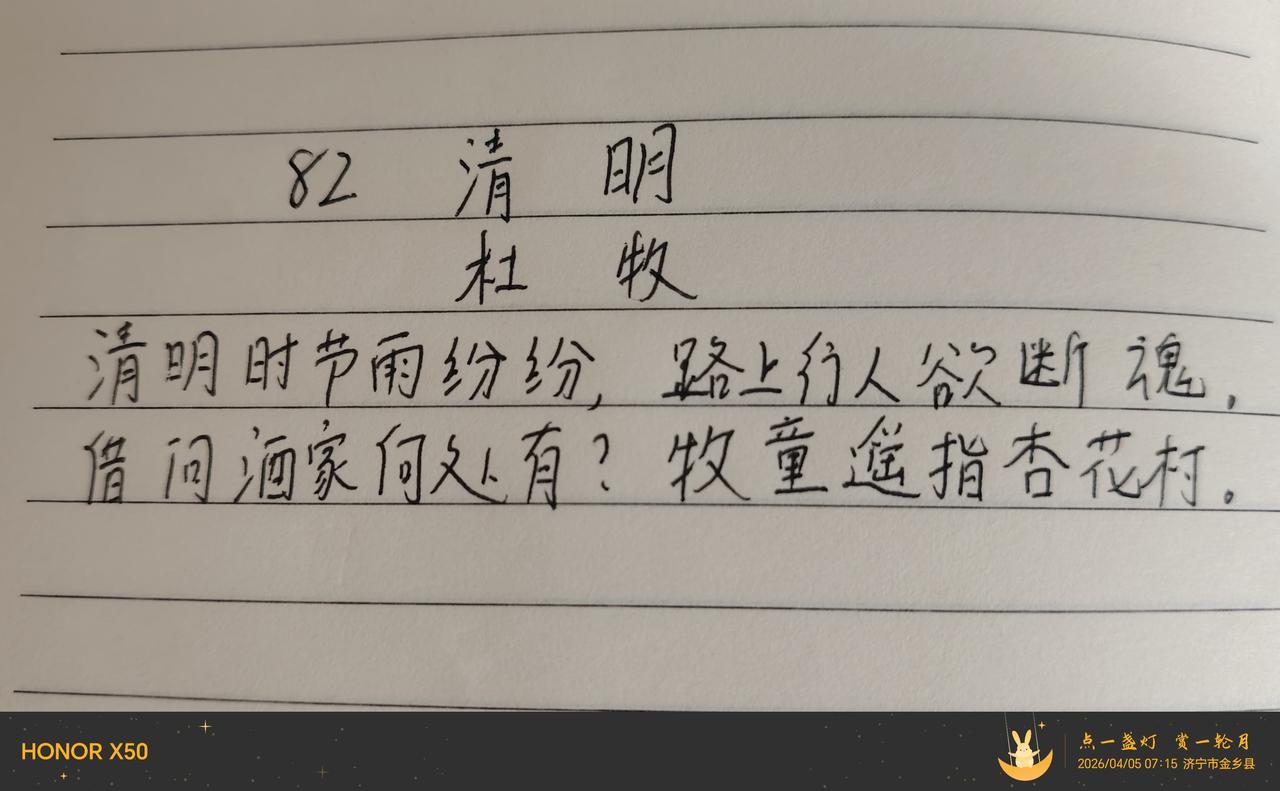 82 清 明
杜 牧
清明时节雨纷纷, 路上行人欲断魂.
借问酒家何处有? 牧童遥指杏花村。
HONOR X50
点一盏灯 赏一轮月
2026/04/05 07:15 济宁市金乡县